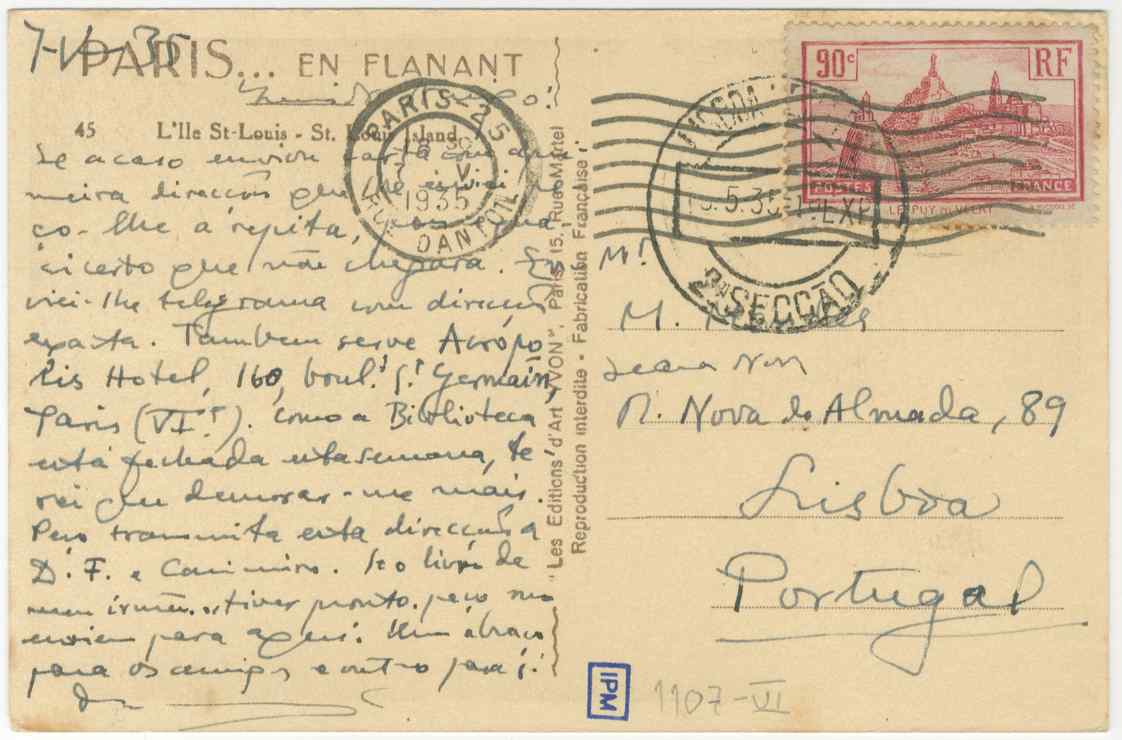 7-V-35
PARIS... EN FLANANT
45 L'Ile St-Louis - St. Louis Island
Se acaso enviou carta com a pri-
meira direcção que lhe enviei,
ço-lhe a repita, pois
é certo que não chegará. En
viei-lhe telegrama com direcção
exacta. Tambem serve Acrópo
lis Hotel, 160, boul. St Germain,
Paris (VI). Como a Biblioteca
está fechada esta semana, te-
rei que demorar-me mais.
Peço transmita esta direcção a
D. F. e Casimiro. Se o livro de
meu irmão estiver pronto, peço me
enviem para aqui. Um abraço
para os amigos e outro para si.
"Les Editions d'Art YVON", Paris, 15, Rue Martel
Reproduction interdite - Fabrication Française
PARIS-25
1935
R. DANTON
LISBOA
5.35
2ª SECÇÃO
90c RF
POSTES FRANCE
LE PUY EN VELAY
M.
Seara Nova
R. Nova do Almada, 89
Lisboa
Portugal
IPM
1107-VI